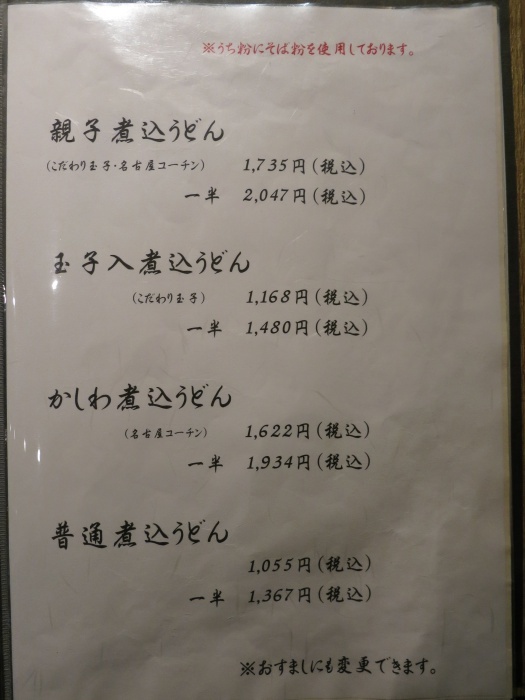 ※うち粉にそば粉を使用しております。
親子煮込うどん
(こだわり玉子・名古屋コーチン) 1,735円(税込)
一半 2,047円(税込)
玉子入煮込うどん
(こだわり玉子) 1,168円(税込)
一半 1,480円(税込)
かしわ煮込うどん
(名古屋コーチン) 1,622円(税込)
一半 1,934円(税込)
普通煮込うどん
1,055円(税込)
一半 1,367円(税込)
※おすましにも変更できます。